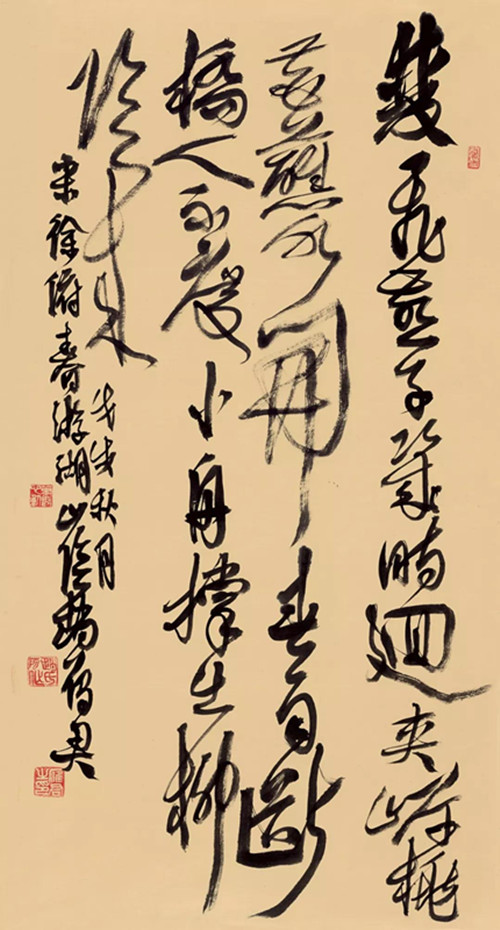 雙飛燕子幾時迴夾岸桃
花蘸水開春雨斷
橋人不度小舟撐出柳
陰來
戊戌秋月
宋徐俯春游湖山陰趙雁君